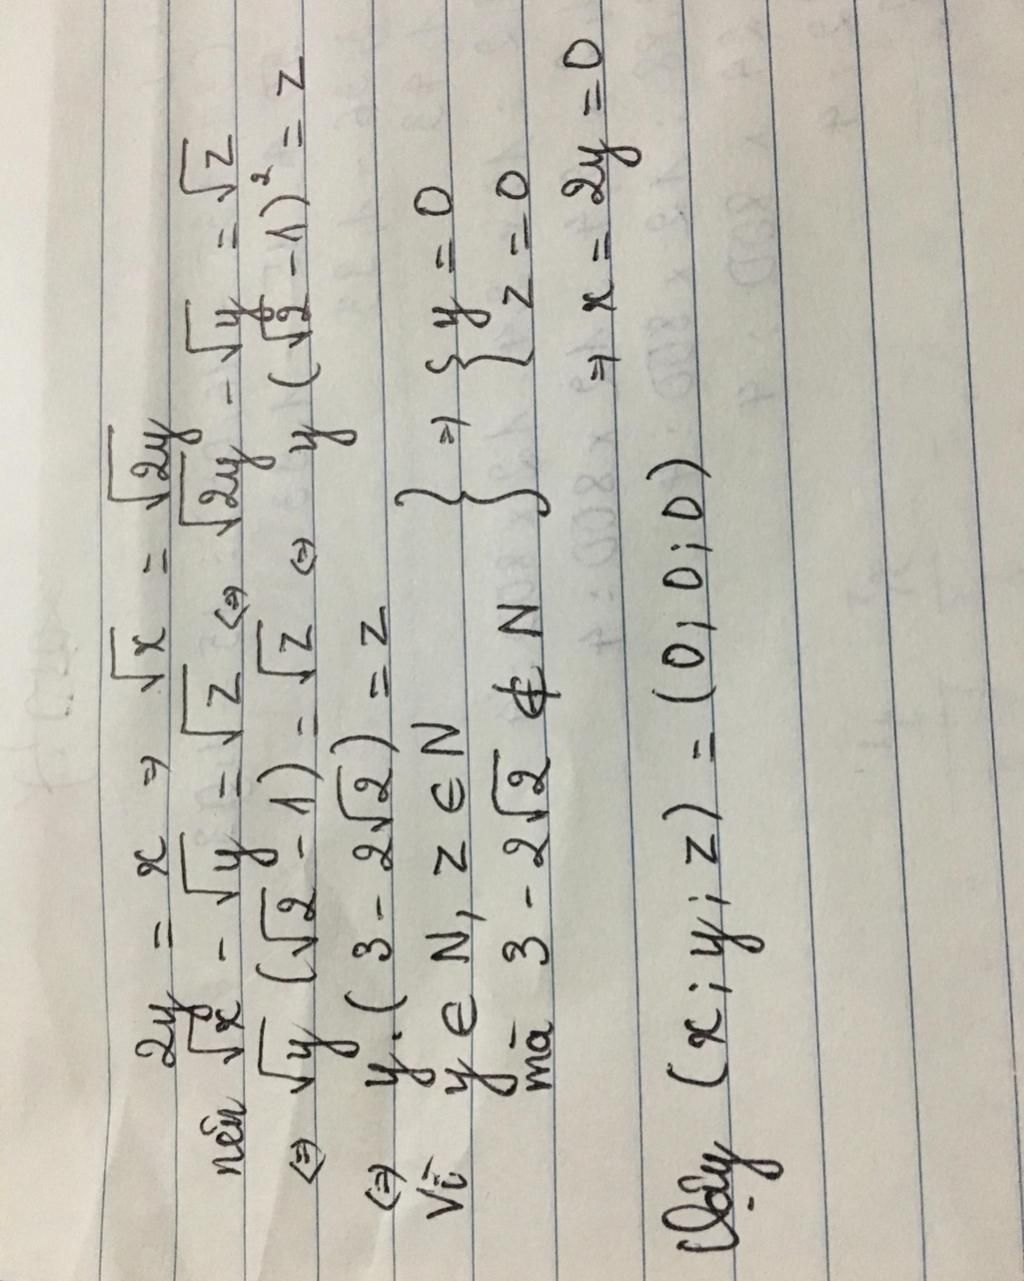 2y = x ⇒ √x = √2y
nên √x - √y = √z ⇔ √2y - √y = √z
⇔ √y (√2 - 1) = √z ⇔ y (√2 - 1)² = z
⇔ y. (3 - 2√2) = z
Vì y ∈ N, z ∈ N } ⇒ { y = 0
mà 3 - 2√2 ∉ N } { z = 0
⇒ x = 2y = 0
Vậy (x; y; z) = (0; 0; 0)